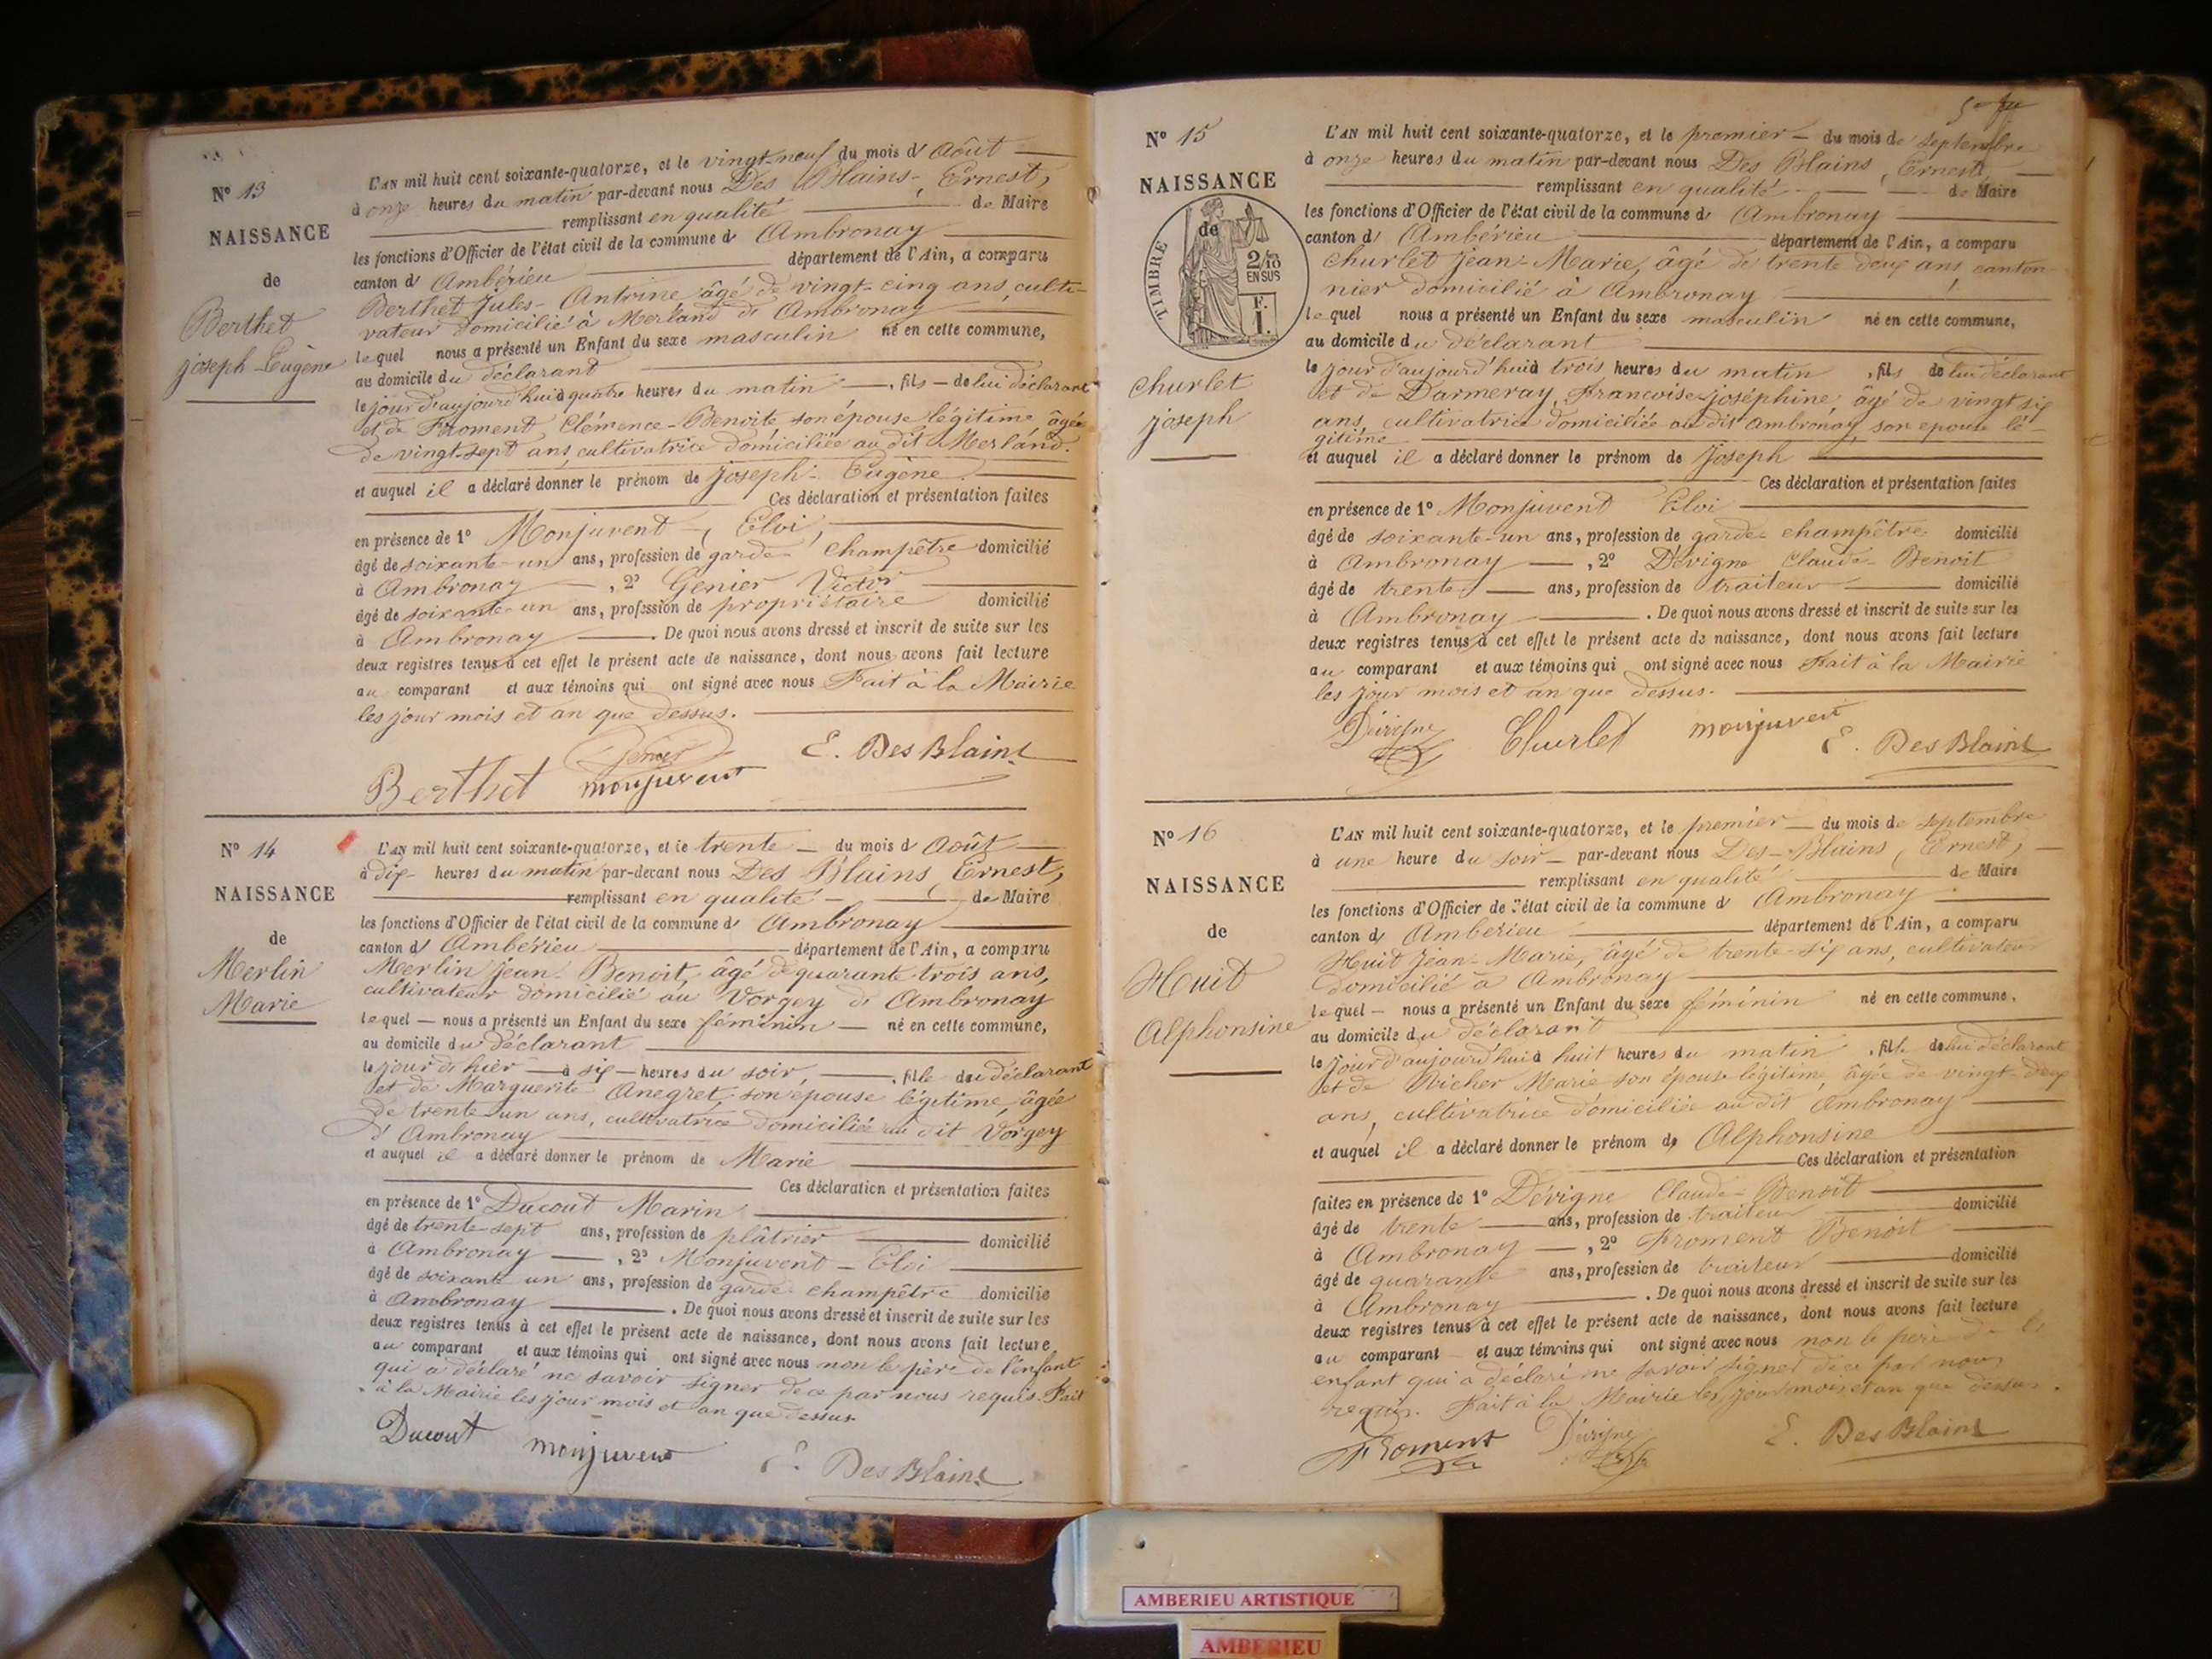 N° 13
NAISSANCE
de
Berthet
joseph-Eugène
L'AN mil huit cent soixante-quatorze, et le vingt-neuf du mois d'Août
à onze heures du matin par-devant nous Des Blains, Ernest,
remplissant en qualité de Maire
les fonctions d'Officier de l'état civil de la commune d'Ambronay
canton d'Ambérieu département de l'Ain, a comparu
Berthet Jules-Antoine âgé de vingt-cinq ans, culti-
vateur domicilié à Merland d'Ambronay
lequel nous a présenté un Enfant du sexe masculin né en cette commune,
au domicile du déclarant
le jour d'aujourd'hui à quatre heures du matin, fils de lui déclarant
et de Froment Clémence-Benoite son épouse légitime, âgée
de vingt-sept ans, cultivatrice domiciliée au dit Merland.
et auquel il a déclaré donner le prénom de joseph-Eugène
Ces déclaration et présentation faites
en présence de 1° Monjuvent, Eloi,
âgé de soixante-un ans, profession de garde-champêtre domicilié
à Ambronay, 2° Genier Victor
âgé de soixante-un ans, profession de propriétaire domicilié
à Ambronay. De quoi nous avons dressé et inscrit de suite sur les
deux registres tenus à cet effet le présent acte de naissance, dont nous avons fait lecture
au comparant et aux témoins qui ont signé avec nous Fait à la Mairie
les jour mois et an que dessus.
Genier E. Des Blains
Berthet monjuvent
N° 14
NAISSANCE
de
Merlin
Marie
L'AN mil huit cent soixante-quatorze, et le trente du mois d'Août
à dix heures du matin par-devant nous Des Blains, Ernest,
remplissant en qualité de Maire
les fonctions d'Officier de l'état civil de la commune d'Ambronay
canton d'Ambérieu département de l'Ain, a comparu
Merlin jean-Benoit, âgé de quarante trois ans,
cultivateur domicilié au Vorgey d'Ambronay
lequel nous a présenté un Enfant du sexe féminin né en cette commune,
au domicile du déclarant
le jour d'hier à six heures du soir, fille du déclarant
et de Marguerite Anegret, son épouse légitime, âgée
de trente-un ans, cultivatrice domiciliée au dit Vorgey
d'Ambronay
et auquel il a déclaré donner le prénom de Marie
Ces déclaration et présentation faites
en présence de 1° Ducout Marin
âgé de trente-sept ans, profession de plâtrier domicilié
à Ambronay, 2° Monjuvent-Eloi
âgé de soixante un ans, profession de garde-champêtre domicilié
à Ambronay. De quoi nous avons dressé et inscrit de suite sur les
deux registres tenus à cet effet le présent acte de naissance, dont nous avons fait lecture
au comparant et aux témoins qui ont signé avec nous non le père de l'enfant
qui a déclaré ne savoir signer de ce par nous requis. Fait
à la Mairie les jour mois et an que dessus
Ducout monjuvent E. Des Blains
N° 15
NAISSANCE
de
TIMBRE
2/10
EN SUS
F.
1.
churlet
joseph
L'AN mil huit cent soixante-quatorze, et le premier du mois de septembre
à onze heures du matin par-devant nous Des Blains, Ernest,
remplissant en qualité de Maire
les fonctions d'Officier de l'état civil de la commune d'Ambronay
canton d'Ambérieu département de l'Ain, a comparu
churlet Jean-Marie, âgé de trente deux ans, canton-
nier domicilié à Ambronay
lequel nous a présenté un Enfant du sexe masculin né en cette commune,
au domicile du déclarant
le jour d'aujourd'hui à trois heures du matin, fils de lui déclarant
et de Darmeray, Francoise-joséphine, âgé de vingt six
ans, cultivatrice domiciliée au dit Ambronay, son epouse lé-
gitime
et auquel il a déclaré donner le prénom de Joseph
Ces déclaration et présentation faites
en présence de 1° Monjuvent Eloi
âgé de soixante-un ans, profession de garde-champêtre domicilié
à Ambronay, 2° Dévigne Claude-Benoit
âgé de trente ans, profession de traiteur domicilié
à Ambronay. De quoi nous avons dressé et inscrit de suite sur les
deux registres tenus à cet effet le présent acte de naissance, dont nous avons fait lecture
au comparant et aux témoins qui ont signé avec nous Fait à la Mairie
les jour mois et an que dessus.
Dévigne Churlet monjuvent E. Des Blains
N° 16
NAISSANCE
de
Huit
Alphonsine
L'AN mil huit cent soixante-quatorze, et le premier du mois de septembre
à une heure du soir par-devant nous Des-Blains, Ernest,
remplissant en qualité de Maire
les fonctions d'Officier de l'état civil de la commune d'Ambronay
canton d'Ambérieu département de l'Ain, a comparu
Huit Jean-Marie, âgé de trente-six ans, cultivateur
domicilié à Ambronay
lequel nous a présenté un Enfant du sexe féminin né en cette commune,
au domicile du déclarant
le jour d'aujourd'hui à huit heures du matin, fille de lui déclarant
et de Richer Marie son épouse légitime, âgée de vingt-deux
ans, cultivatrice domiciliée au dit Ambronay
et auquel il a déclaré donner le prénom de Alphonsine
Ces déclaration et présentation
faites en présence de 1° Dévigne Claude-Benoit
âgé de trente ans, profession de traiteur domicilié
à Ambronay, 2° Froment Benoit
âgé de quarante ans, profession de traiteur domicilié
à Ambronay. De quoi nous avons dressé et inscrit de suite sur les
deux registres tenus à cet effet le présent acte de naissance, dont nous avons fait lecture
au comparant et aux témoins qui ont signé avec nous non le père de l'
enfant qui a déclaré ne savoir signer de ce par nous
requis. Fait à la Mairie les jour mois et an que dessus.
Froment Dévigne E. Des Blains
AMBERIEU ARTISTIQUE
AMBERIEU